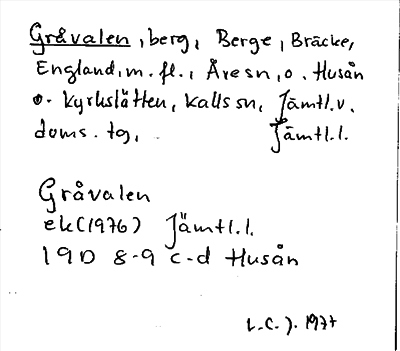 Gråvalen, berg, Berge, Bräcke,
England, m. fl., Åre sn, o. Husån
o. Kyrkslätten, Kalls sn, Jämtl. v.
doms. tg, Jämtl. l.
Gråvalen
ek (1976) Jämtl. l.
19D 8-9 c-d Husån
L.C.J. 1977